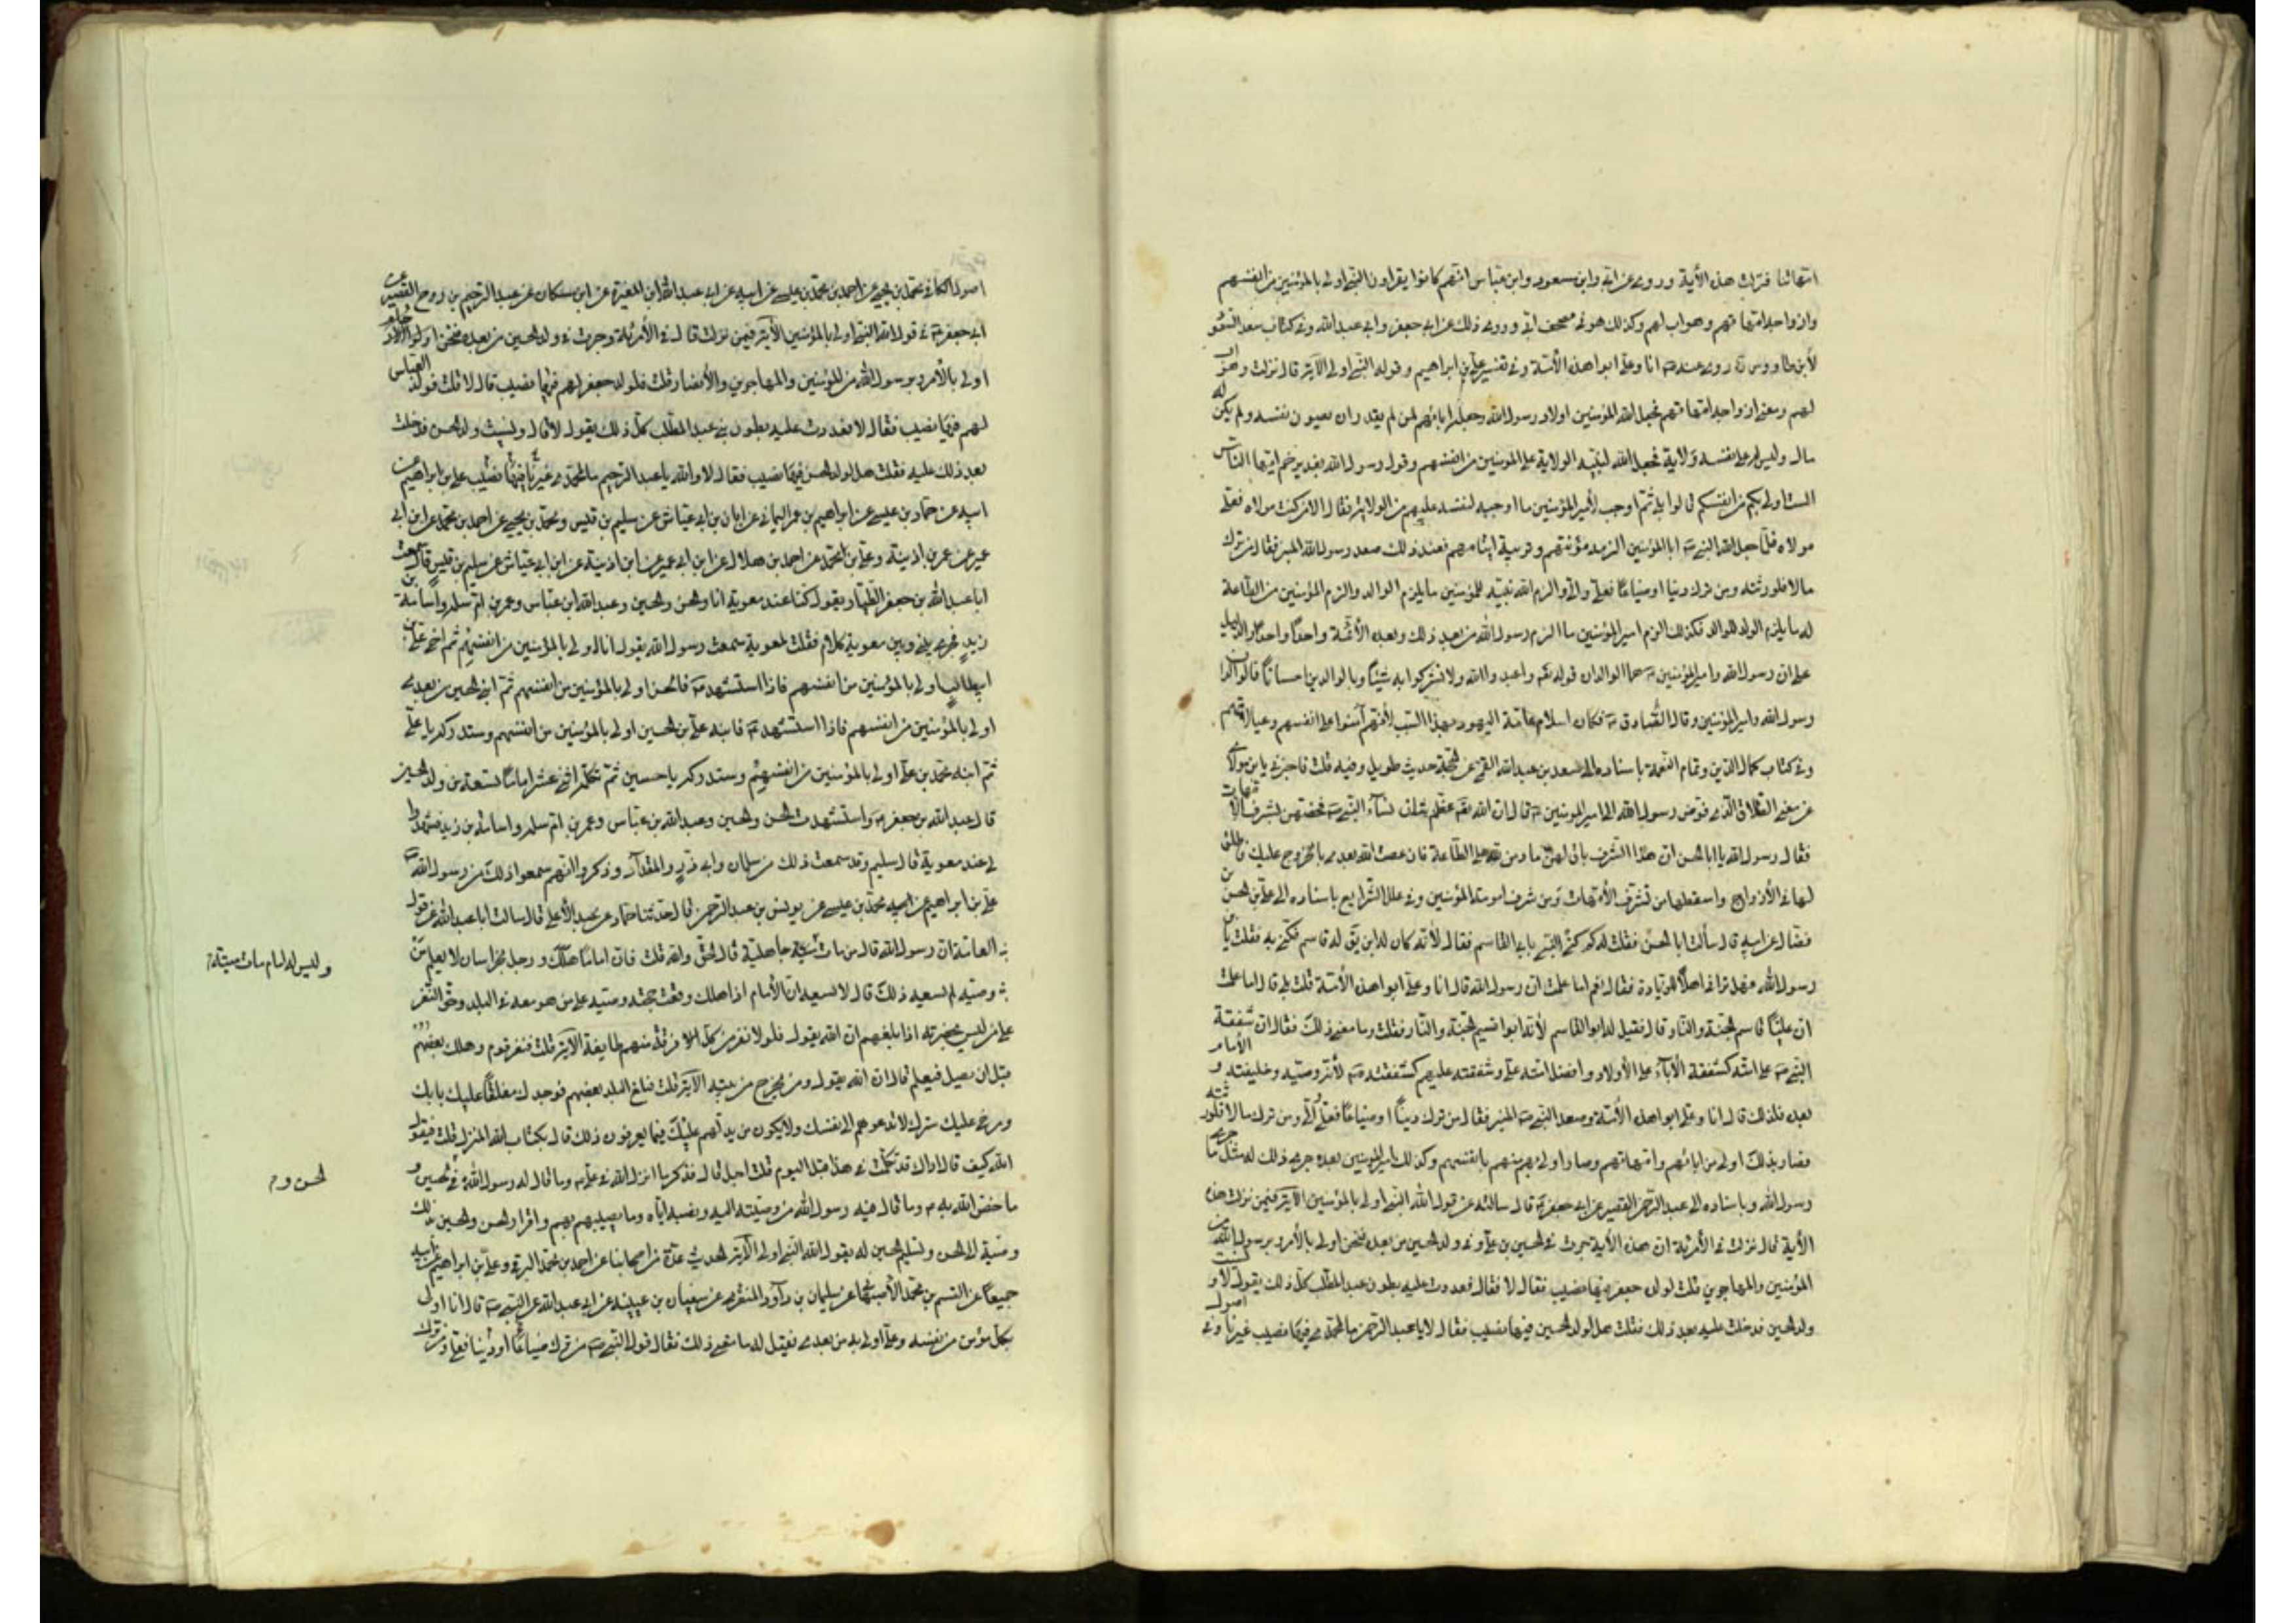 امهاتنا فنزلت هذه الأية وروى عن ابي وابن مسعود وابن عباس انهم كانوا يقراون النبي اولى بالمؤمنين من انفسهم
وازواجه امهاتهم وهو اب لهم وكذلك هو في مصحف ابي وروى ذلك عن ابي جعفر وابي عبد الله وفي كتاب سعد السعود
لأبن طاووس ره روى عنه ص انا وعلي ابوا هذه الأمة وفي تفسير علي بن ابراهيم وقوله النبي اولى الآية قال نزلت وهو اب
لهم ومعنى ازواجه امهاتهم فجعل الله المؤمنين اولاد رسول الله وجعله اباهم لمن لم يقدر ان يصون نفسه ولم يكن له
مال وليس له على نفسه ولاية فجعل الله لنبيه الولاية على المؤمنين من انفسهم وقول رسول الله بغدير خم ايها الناس
الست اولى بكم من انفسكم قالوا بلى ثم اوجب لأمير المؤمنين ما اوجبه لنفسه عليهم من الولاية فقال الا من كنت مولاه فعلي
مولاه فلما جعل الله النبي ص ابا المؤمنين الزمه مؤنتهم وتربية ايتامهم فعند ذلك صعد رسول الله المنبر فقال من ترك
مالا فلورثته ومن ترك دينا او ضياعا فعلي والي والزم الله نبيه للمؤمنين ما يلزم الوالد والزم المؤمنين من الطاعة
له ما يلزم الولد للوالد فكذلك الزم امير المؤمنين ما الزم رسول الله من بعد ذلك وبعده الأئمة واحدا واحدا والدليل
على ان رسول الله وامير المؤمنين ع هما الوالدان قوله تع واعبدوا الله ولا تشركوا به شيئا وبالوالدين احسانا فالوالدان
رسول الله وامير المؤمنين وقال الصادق ع فكان اسلام عامة اليهود بهذا السبب لأنهم آمنوا على انفسهم وعيالاتهم
وفي كتاب كمال الدين وتمام النعمة باسناده الى سعد بن عبد الله القمي عن الحجة حديث طويل وفيه قلت فاخبرني يابن مولاي
عن معنى الطلاق الذي فوض رسول الله الى امير المومنين ع قال ان الله تع عظم شان نساء النبي ص فخصهن بشرف الامهات
فقال رسول الله يا ابا الحسن ان هذا الشرف باق لهن ما دمن لله على الطاعة فان عصت الله بعدي بالخروج عليك فاطلق
لها في الأزواج واسقطها من تشرف الأمهات ومن شرف امومة المؤمنين وفي علل الشرايع باسناده الى علي بن الحسن بن
فضال عن ابيه قال سألت ابا الحسن فقلت له لم كني النبي بابي القاسم فقال لأنه كان له ابن يق له قاسم فكني به فقلت يابن
رسول الله فهل تراني اهلا للزيادة فقال نعم اما علمت ان رسول الله قال انا وعلي ابوا هذه الأمة قلت بلى قال اما علمت
ان عليا قاسم الجنة والنار قال فقيل له ابو القاسم لأنه ابو قسيم الجنة والنار فقلت وما معنى ذلك فقال ان شفقة
النبي ص على امته كشفقة الآباء على الأولاد وافضل امته علي وشفقته عليهم كشفقته ص لأنه وصيه وخليفته والامام
بعده فلذلك قال انا وعلي ابوا هذه الأمة وصعد النبي ص المنبر فقال من ترك دينا او ضياعا فعلي والي ومن ترك مالا فلورثته
فصار بذلك اولى من ابائهم وامهاتهم وصار اولى بهم منهم بانفسهم وكذلك امير المؤمنين بعده جرى ذلك له مثل ما جرى
رسول الله وباسناده الى عبد الرحمن القصير عن ابي جعفر ع قال سالته عن قول الله النبي اولى بالمؤمنين الآية فيمن نزلت هذه
الأية قال نزلت في الأمرة ان هذه الأية جرت في الحسين بن علي وفي ولد الحسين من بعده فنحن اولى بالأمر وبرسول الله من
المؤمنين والمهاجرين قلت لولد جعفر فيها نصيب فقال لا فقال فعددت عليه بطون عبد المطلب كل ذلك يقول لا ونسيت
ولد الحسين فدخلت عليه بعد ذلك فقلت هل لولد الحسين فيها نصيب فقال لا يا عبد الرحمن ما لمحمدي فيها نصيب غيرنا وفي اصول
اصول الكافي محمد بن يحيى عن احمد بن محمد بن عيسى عن ابيه عن ابي عبد الله ابن المغيرة عن ابن مسكان عن عبد الرحيم بن روح القصير عن
ابي جعفر ع في قول الله النبي اولى بالمؤمنين الآية فيمن نزلت قال في الأمرة وجرت في ولد الحسين من بعده فنحن اولوا الارحام
اولى بالأمر وبرسول الله من المؤمنين والمهاجرين والأنصار قلت فلولد جعفر لهم فيها نصيب قال لا قلت فولد العباس
لهم فيها نصيب فقال لا فعددت عليه بطون بني عبد المطلب كل ذلك يقول لا قال ونسيت ولد الحسن فدخلت
بعد ذلك عليه فقلت هل لولد الحسن فيها نصيب فقال لا والله يا عبد الرحيم ما لمحمدي فيها نصيب غيرنا علي بن ابراهيم عن
ابيه عن حماد بن عيسى عن ابراهيم بن عمر اليماني عن ابان بن ابي عياش عن سليم بن قيس ومحمد بن يحيى عن احمد بن محمد عن ابن ابي
عمير عن عمر بن اذينة وعلي بن محمد عن احمد بن هلال عن ابن ابي عمير عن ابن اذينة عن ابن ابي عياش عن سليم بن قيس قال سمعت
ابا عبد الله بن جعفر الطيار يقول كنا عند معوية انا والحسن والحسين وعبد الله ابن عباس وعمر بن ام سلمه واسامة بن
زيد فجرى بيني وبين معوية كلام فقلت لمعوية سمعت رسول الله يقول انا اولى بالمؤمنين من انفسهم ثم اخي علي بن
ابي طالب اولى بالمؤمنين من انفسهم فاذا استشهد ع فالحسن اولى بالمؤمنين من انفسهم ثم ابني الحسين من بعدي
اولى بالمؤمنين من انفسهم فاذا استشهد ع فابنه علي بن الحسين اولى بالمؤمنين من انفسهم وستدركه يا علي
ثم ابنه محمد بن علي اولى بالمؤمنين من انفسهم وستدركه يا حسين ثم تكمله اثني عشر اماما تسعة من ولد الحسين
قال عبد الله بن جعفر ع واستشهدت الحسن والحسين وعبد الله بن عباس وعمر بن ام سلمه واسامة بن زيد فشهدوا
لي عند معوية قال سليم وقد سمعت ذلك من سلمان وابي ذر والمقداد وذكروا انهم سمعوا ذلك من رسول الله ص
علي بن ابراهيم عن ابيه محمد بن عيسى عن يونس بن عبد الرحمن قال حدثنا حماد عن عبد الأعلى قال سالت ابا عبد الله عن قول
العامة ان رسول الله قال من مات ميتة جاهلية قال الحق والله قلت فان اماما هلك ورجل بخراسان لا يعلم من
وصيه لم يسعه ذلك قال لا يسعه ان الأمام اذا هلك وقعت حجته وصيه على من هو معه في البلد وحق النفر
على من ليس بحضرته اذا بلغهم ان الله يقول فلولا نفر من كل فرقة منهم طايفة الآية قلت فنفر قوم وهلك بعضهم
قبل ان يصل فيعلم قال ان الله يقول ومن يخرج من بيته الآية قلت فبلغ البلد بعضهم فوجدك مغلقا عليك بابك
ومرخى عليك سترك لا تدعوهم الى نفسك ولا يكون من يدلهم عليك فبما يعرفون ذلك قال بكتاب الله المنزل قلت فيقول
الله كيف قال اراك قد تكلمت في هذا قبل اليوم قلت اجل قال فذكر ما انزل الله في علي ع وما قال له رسول الله في حسن و
ما خص الله به ع وما قال فيه رسول الله من وصيته اليه ونصبه اياه وما يصيبهم بهم واقرار الحسن والحسين بذلك
وصيته الى الحسن وتسليم الحسين له يقول الله النبي اولى الآية الحديث عدة من اصحابنا عن احمد بن محمد البرقي وعلي بن ابراهيم عن ابيه
جميعا عن القسم بن محمد الأصبهاني عن سليمان بن داود المنقري عن سفيان بن عيينه عن ابي عبد الله عن النبي ص قال انا اولى
بكل مؤمن من نفسه وعلي اولى به من بعدي فقيل له ما معنى ذلك فقال قول النبي ص من ترك ضياعا او دينا فعلي ومن ترك
وليس له امام مات ميتة
الحسن و م